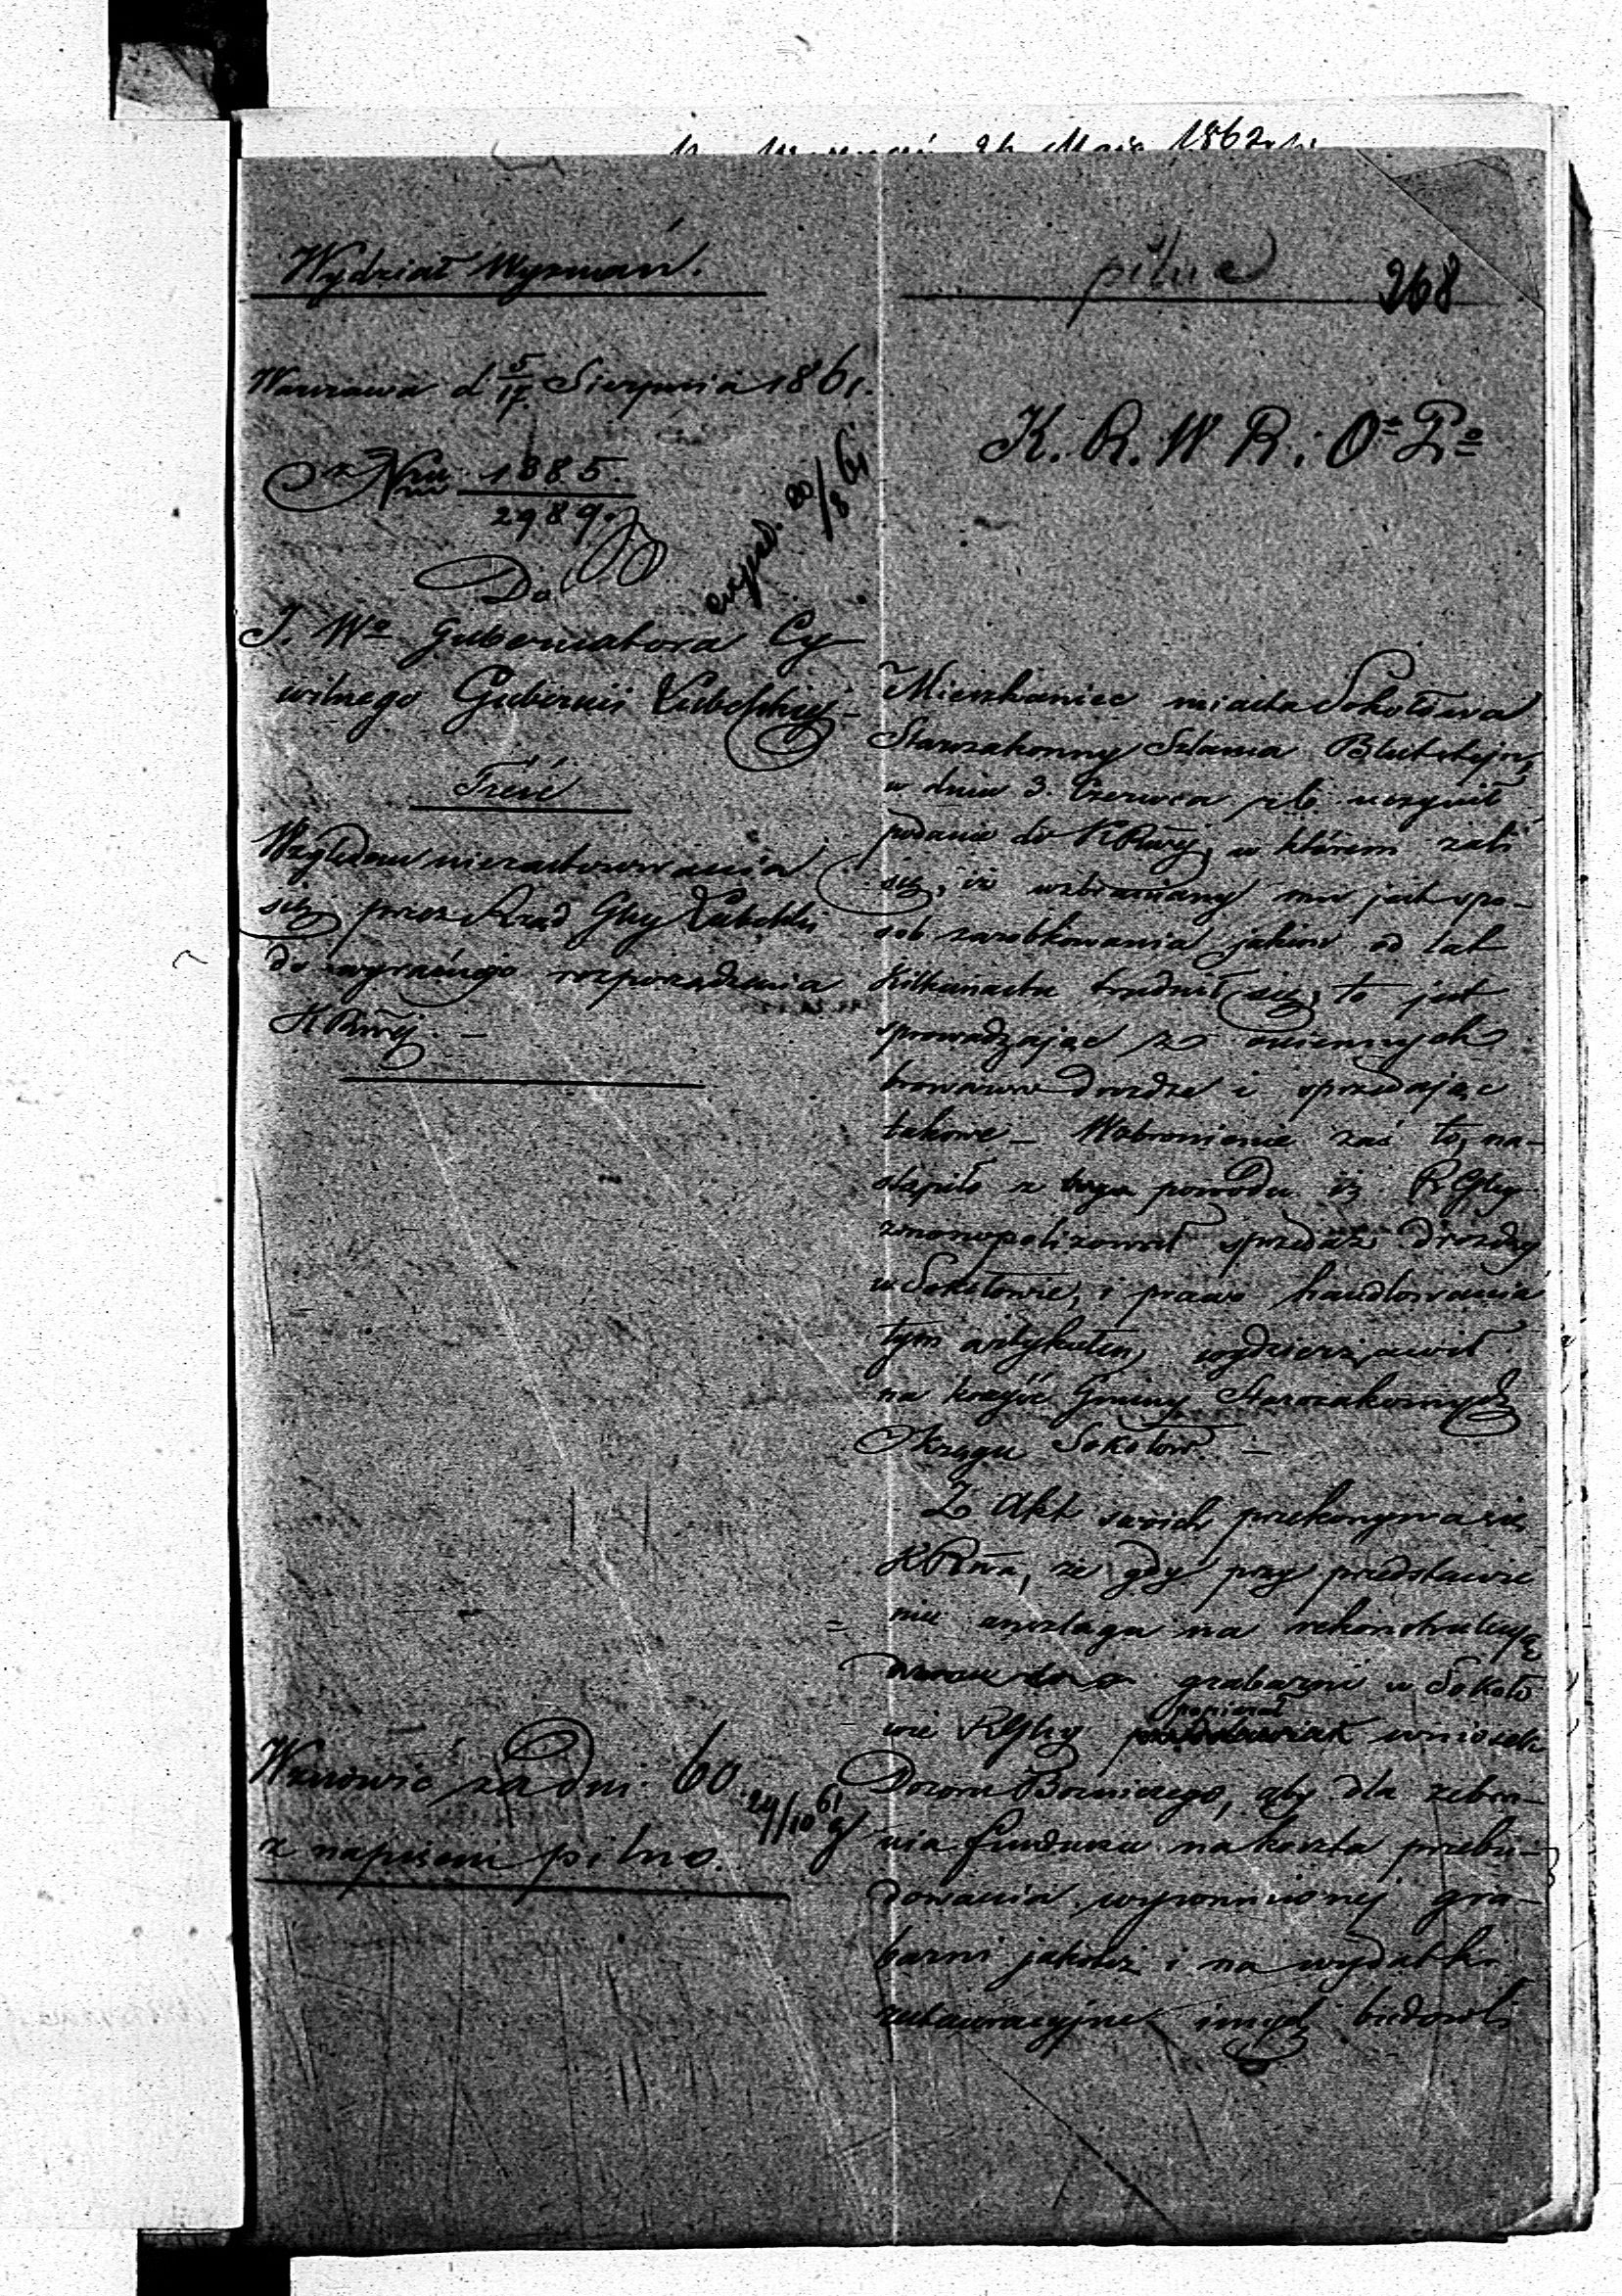 Maja 1862 r.
Wydział Wyznań.
pilne
268
Warszawa d 5/17 Sierpnia 1861.
K. R. W R. i O. P.
Nru 1885.
2989.
exped. 20/8 61
Do
J. Wo Gubernatora Cy
wilnego Gubernii Lubelskiej
Treść
Względem niezastosowania
się przez Rząd Gby Lubelski
do wyraźnego rozporządzenia
KRwéj. —
Wznowić za dni 60
24/10 61
z napisem pilno.
Mieszkaniec miasta Sokołowa
Starozakonny Szlama Blutsztejn,
w dniu 3. Czerwca r. b. uczynił
podanie do KRwéj, w którem żali
się, iż wzbraniany mu jest spo-
sób zarobkowania jakim od lat
kilkunastu trudnił się, to jest
sprowadzając z ościennych
browarów drożdże i sprzedając
takowe — Wzbronienie zaś to, na-
stąpiło z tego powodu iż RGby
zmonopolizował sprzedaż drożdży
w Sokołowie, i prawo handlowania
tym artykułem, wydzierżawił
na korzyść Gminy Starozakonnych
Okręgu Sokołow. —
Z Akt swoich przekonywa się
KRwa, że gdy przy przedstawie
niu anszlagu na rekonstrukcyę
domu grabarni w Sokoło
wie RGby popierał wniosek
Dozoru Bożniczego, aby dla zebra-
nia funduszu na koszta przebu-
dowania wspomnionej gra-
barni jakoteż i na wydatki
restauracyjne innych budowli